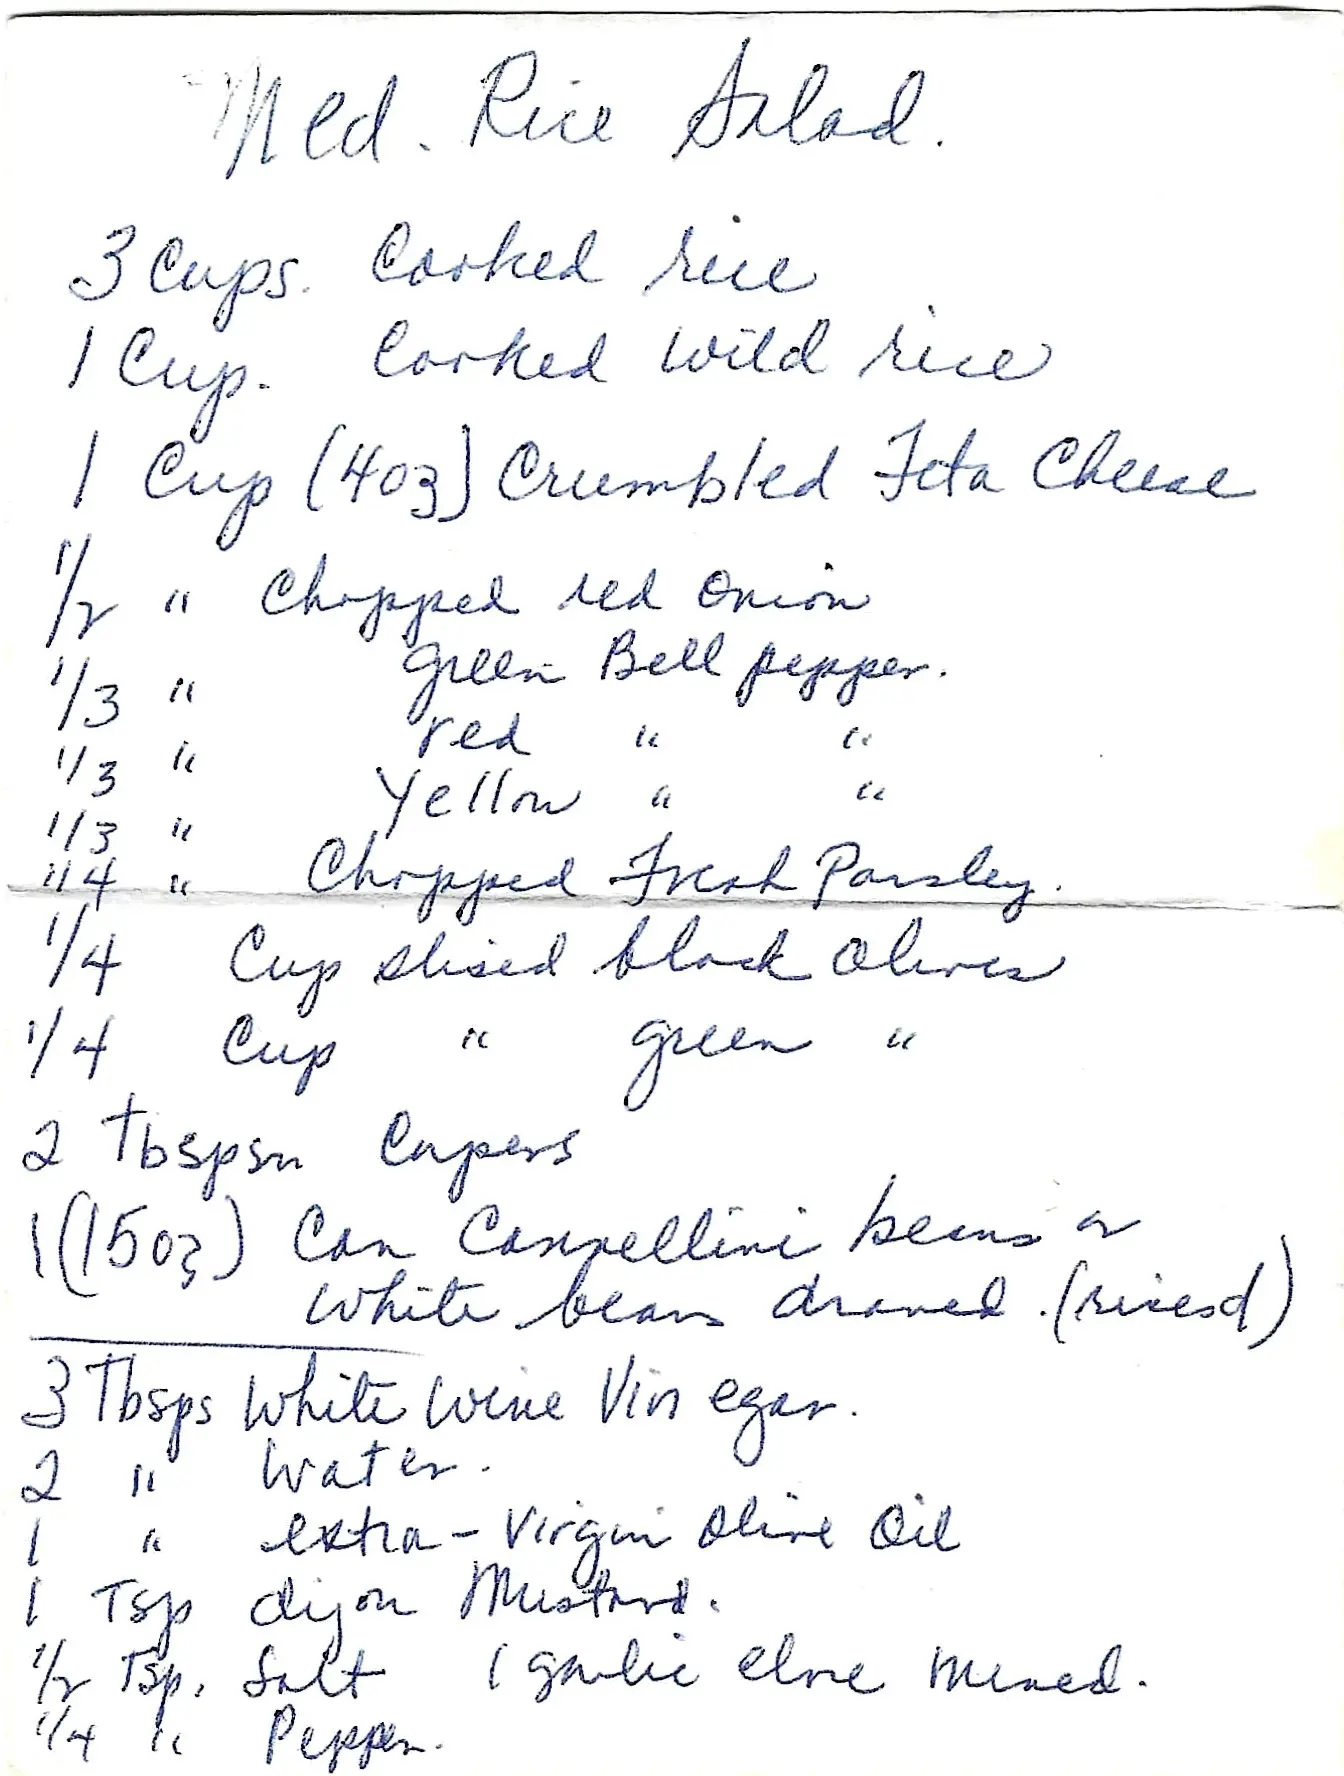 Med. Rice Salad.
3 Cups. Cooked rice
1 Cup. Cooked wild rice
1 Cup (4oz) Crumbled Feta Cheese
1/2 " Chopped red Onion
1/3 " green Bell pepper.
1/3 " red " "
1/3 " Yellow " "
1/4 " Chopped Fresh Parsley.
1/4 Cup slised black Olives
1/4 Cup " green "
2 tbspsn Capers
1 (15oz) Can Cannellini beans or
white beans drained. (rinesd)
3 Tbsps White Wine Vinegar.
2 " Water.
1 " extra-Virgin Olive Oil
1 Tsp dijon Mustard.
1/2 Tsp. Salt 1 garlic clove Minced.
1/4 " Pepper.